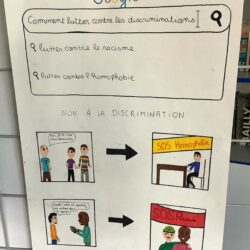 Google
Comment lutter contre les discriminations
lutter contre le racisme
lutter contre l'Homophobie
NON À LA DISCRIMINATION
SOS Homophobie
SOS Racisme